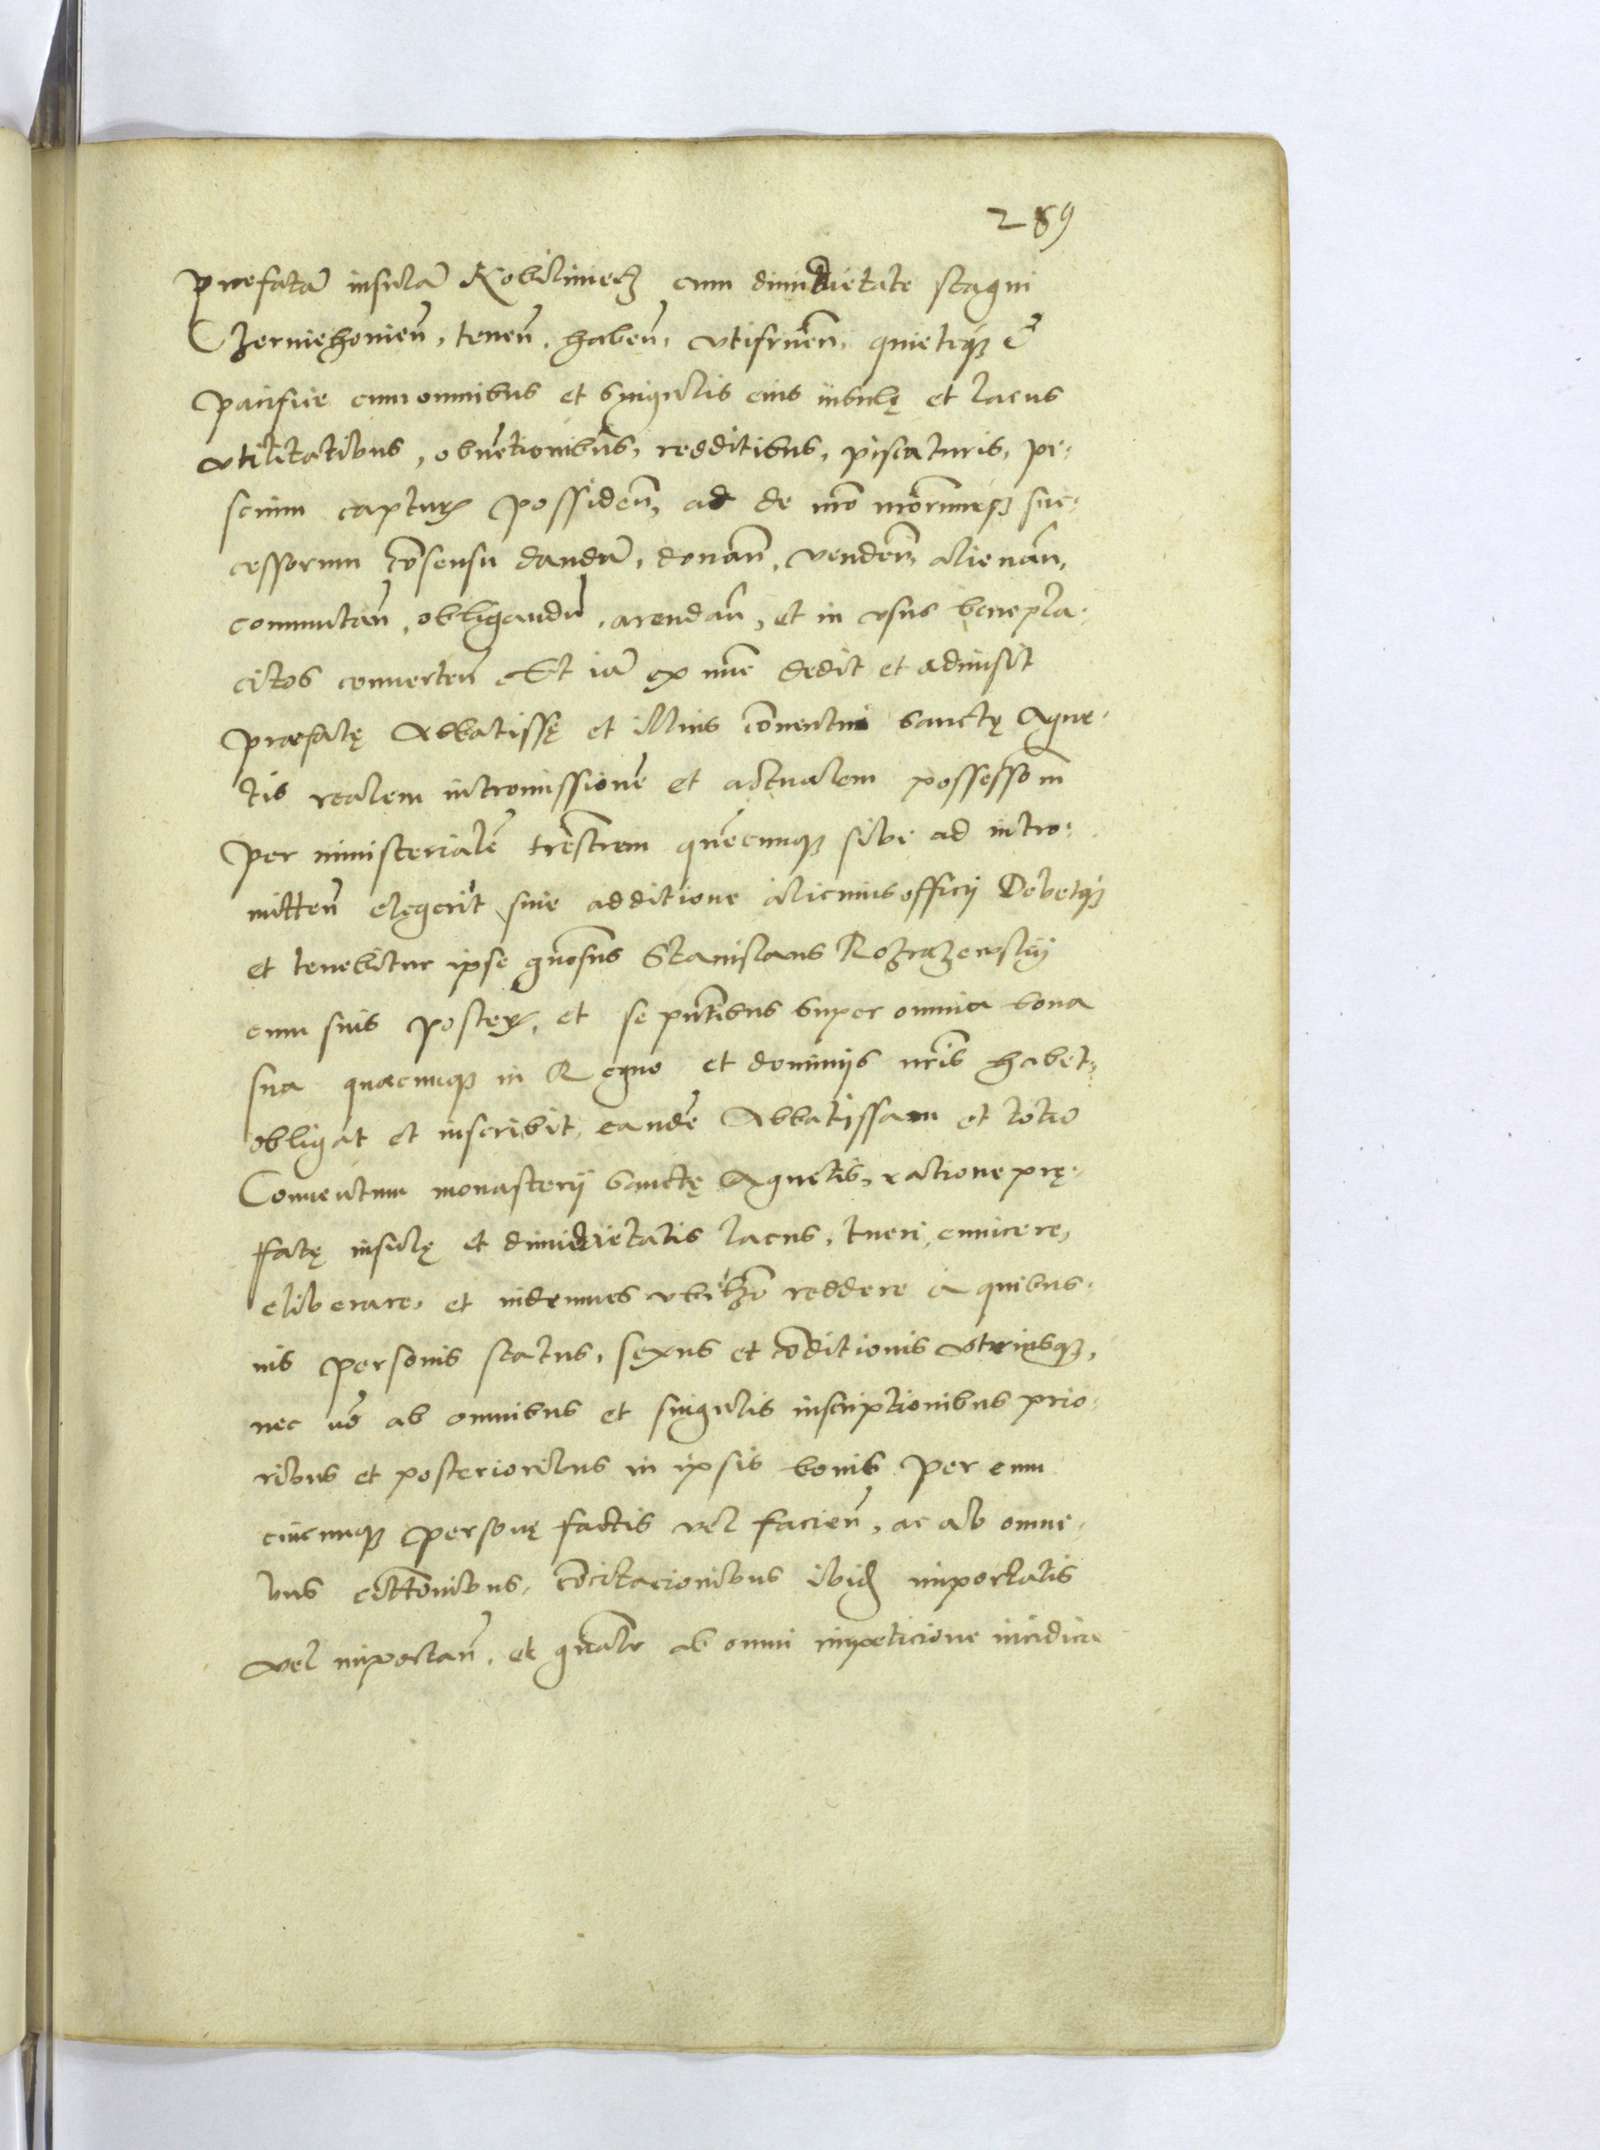 289
Praefatã insulã Kobilimierz cum dimidietate stagni
Czerniechonieñ, teneñ, habeñ, vtifrueñ, quieteq3 &
pacifice cum omnibus et singulis eius insulę et lacus
vtilitatibus, obuẽtionibus, redditibus, piscaturis, pi-
scium captur possideñ, ac de nrõ nrõrumq3 suc-
cessorum cõsensu dandã, donañ, vendeñ, alienañ,
commutañ, obligandũ, arendañ, et in vsus benepla-
citos conuerteñ Et iã ex nũc dedit et admisit
praefatę Abbatissę et illius cõuentui Sanctę Agne-
tis realem intromissionẽ et actualem possessõm
per ministerialẽ trẽstrem quẽcunq3 sibi ad intro-
mitteñ elegerit, sine additione alicuius officij Debetq3
et tenebitur ipse gñosus Stanislaus Rozrazewskij
cum suis poster, et se pñtibus super omnia bona
sua quaecunq3 in Regno et dominijs nr̃is habet,
obligat et inscribit, eandẽ Abbatissam et totio
Conuentum monasterij Sanctę Agnetis, ratione prę-
fatę insulę et dimidietatis lacus, tueri, euincere,
eliberare, et indemnes reddere a quibus-
uis personis status, sexus et cõditionis vtriusq3,
nec nõ ab omnibus et singulis inscriptionibus prio-
ribus et posterioribus in ipsis bonis per eum
cuicunq3 personę factis vel facieñ, ac ab omni-
bus cittõnibus, cõcitacionibus ibid importatis
vel importañ, et gñalr ab omni impeticione iuridica